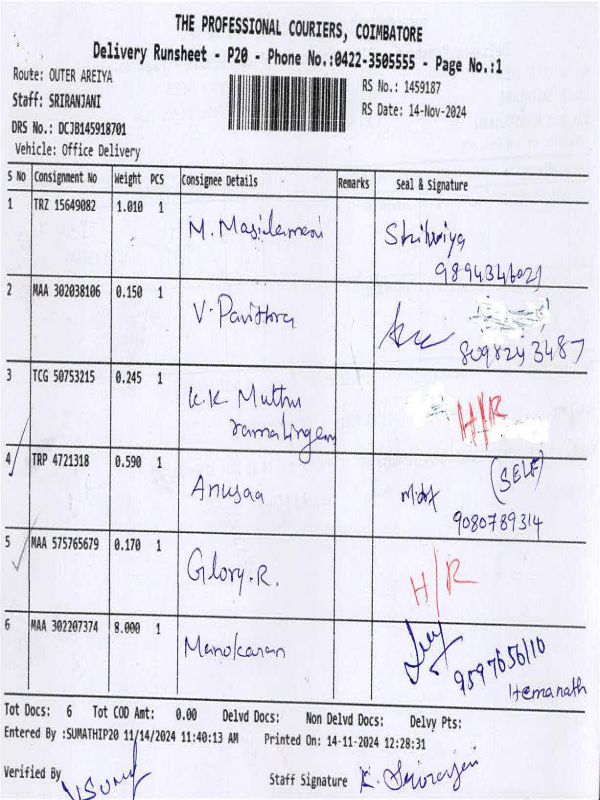 THE PROFESSIONAL COURIERS, COIMBATORE
Delivery Runsheet - P20 - Phone No.:0422-3505555 - Page No.:1
Route: OUTER AREIYA
RS No.: 1459187
Staff: SRIRANJANI
RS Date: 14-Nov-2024
DRS No.: DCJB145918701
Vehicle: Office Delivery
S No Consignment No Weight PCS Consignee Details Remarks Seal & Signature
1 TRZ 15649082 1.010 1 M. Masilamani
9894346021
2 MAA 302038106 0.150 1 V. Pavithra
8098243487
3 TCG 50753215 0.245 1 K.K. Muthu
ramalingam
H/R
4 TRP 4721318 0.590 1 Anusaa
(SELF)
9080789314
5 MAA 575765679 0.170 1 Glory.R.
H/R
6 MAA 302207374 8.000 1 Manokaran
9597656110
Hemanath
Tot Docs: 6 Tot COD Amt: 0.00 Delvd Docs: Non Delvd Docs: Delvy Pts:
Entered By :SUMATHIP20 11/14/2024 11:40:13 AM Printed On: 14-11-2024 12:28:31
Verified By
Staff Signature K. Sriranjani